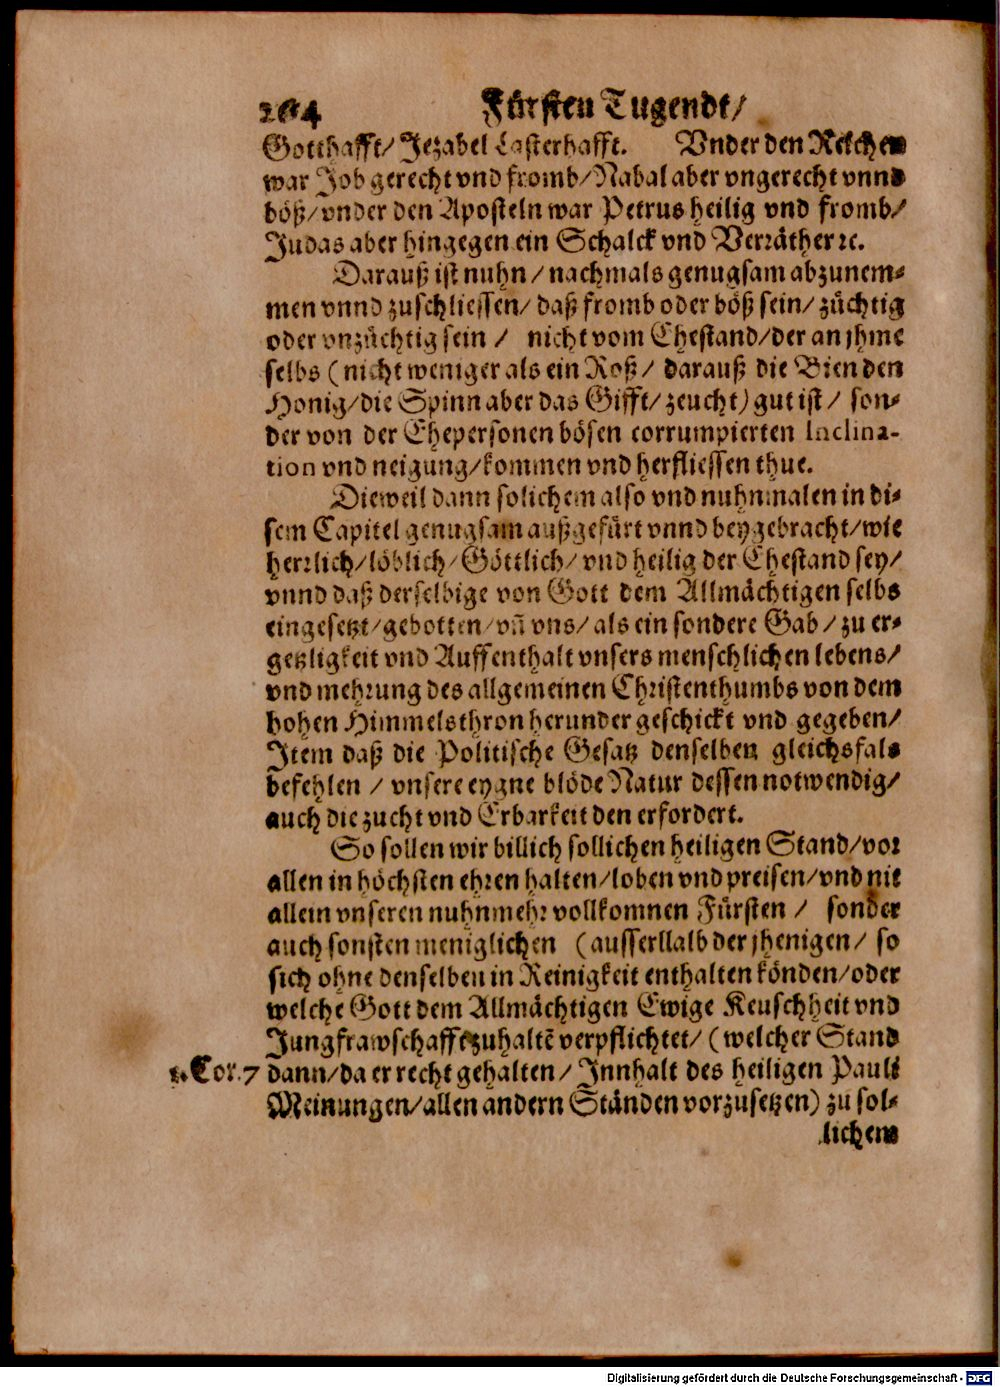 204 Fürsten Tugendt/
Gotthafft/ Jezabel Lasterhafft. Vnder den Reichen
war Job gerecht vnd fromb/ Nabal aber vngerecht vnnd
böß/ vnder den Aposteln war Petrus heilig vnd fromb/
Judas aber hingegen ein Schalck vnd Verräther ꝛc.
Darauß ist nuhn / nachmals genugsam abzunem-
men vnnd zuschliessen/ daß fromb oder böß sein/ züchtig
oder vnzüchtig sein / nicht vom Ehestand/ der an jhme
selbs (nicht weniger als ein Roß/ darauß die Bien den
Honig/ die Spinn aber das Gifft/ zeucht) gut ist/ son-
der von der Ehepersonen bösen corrumpierten Inclina-
tion vnd neigung/ kommen vnd herfliessen thue.
Dieweil dann solichem also vnd nuhnmalen in di-
sem Capitel genugsam außgefürt vnnd beygebracht/ wie
herrlich/ löblich/ Göttlich/ vnd heilig der Ehestand sey/
vnnd daß derselbige von Gott dem Allmächtigen selbs
eingesetzt/ gebotten/ vñ vns/ als ein sondere Gab/ zu er-
getzligkeit vnd Auffenthalt vnsers menschlichen lebens/
vnd mehrung des allgemeinen Christenthumbs von dem
hohen Himmelsthron herunder geschickt vnd gegeben/
Item daß die Politische Gesatz denselben gleichsfals
befehlen / vnsere eygne blöde Natur dessen notwendig/
auch die zucht vnd Erbarkeit den erfordert.
So sollen wir billich sollichen heiligen Stand/ vor
allen in höchsten ehren halten/ loben vnd preisen/ vnd nit
allein vnseren nuhnmehr vollkomnen Fürsten / sonder
auch sonsten meniglichen (ausserllalb der jhenigen/ so
sich ohne denselben in Reinigkeit enthalten könden/ oder
welche Gott dem Allmächtigen Ewige Keuschheit vnd
Jungfrawschafft zuhaltē verpflichtet/ (welcher Stand
1. Cor. 7 dann/ da er recht gehalten/ Innhalt des heiligen Pauli
Meinungen/ allen andern Ständen vorzusetzen) zu sol-
lichem
Digitalisierung gefördert durch die Deutsche Forschungsgemeinschaft - DFG